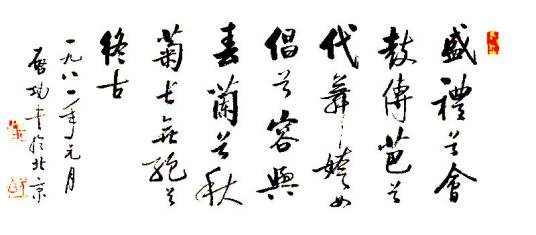 盛禮兮會
鼓傳芭兮
代舞姱女
倡兮容與
春蘭兮秋
菊長無絕兮
終古
一九八二年元月
啓功書於北京